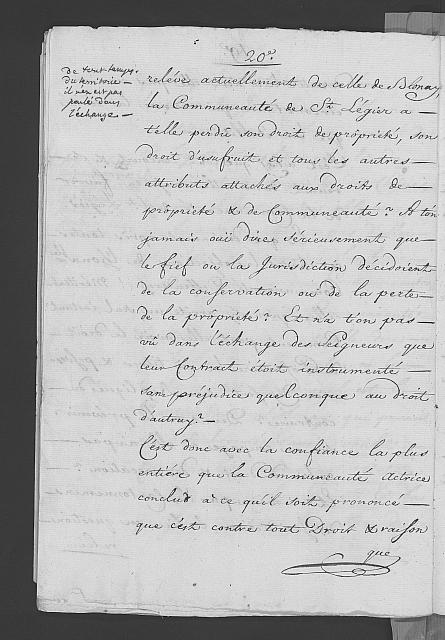 20º.
de tout temps.
du territoire —
il n'en est pas
parlé dans
l'échange —
reléve actuellement de celle de Blonay
la Communeauté de St. Légier a —
t'elle perdu son droit de propriété, son
droit d'usufruit et tous les autres —
attributs attachés aux droits de —
propriété & de Communeauté? A t'on
jamais ouï dire sérieusement que
le fief ou la Jurisdiction décidoient
de la conservation ou de la perte —
de la propriété? Et n'a t'on pas —
vû dans l'échange des Seigneurs que
leur Contract étoit instrumenté —
sans préjudice quelconque au Droit
d'autruy? —
C'est donc avec la confiance la plus
entiére que la Communeauté actrice
conclud à ce qu'il soit prononcé —
que c'est contre tout Droit & raison
que